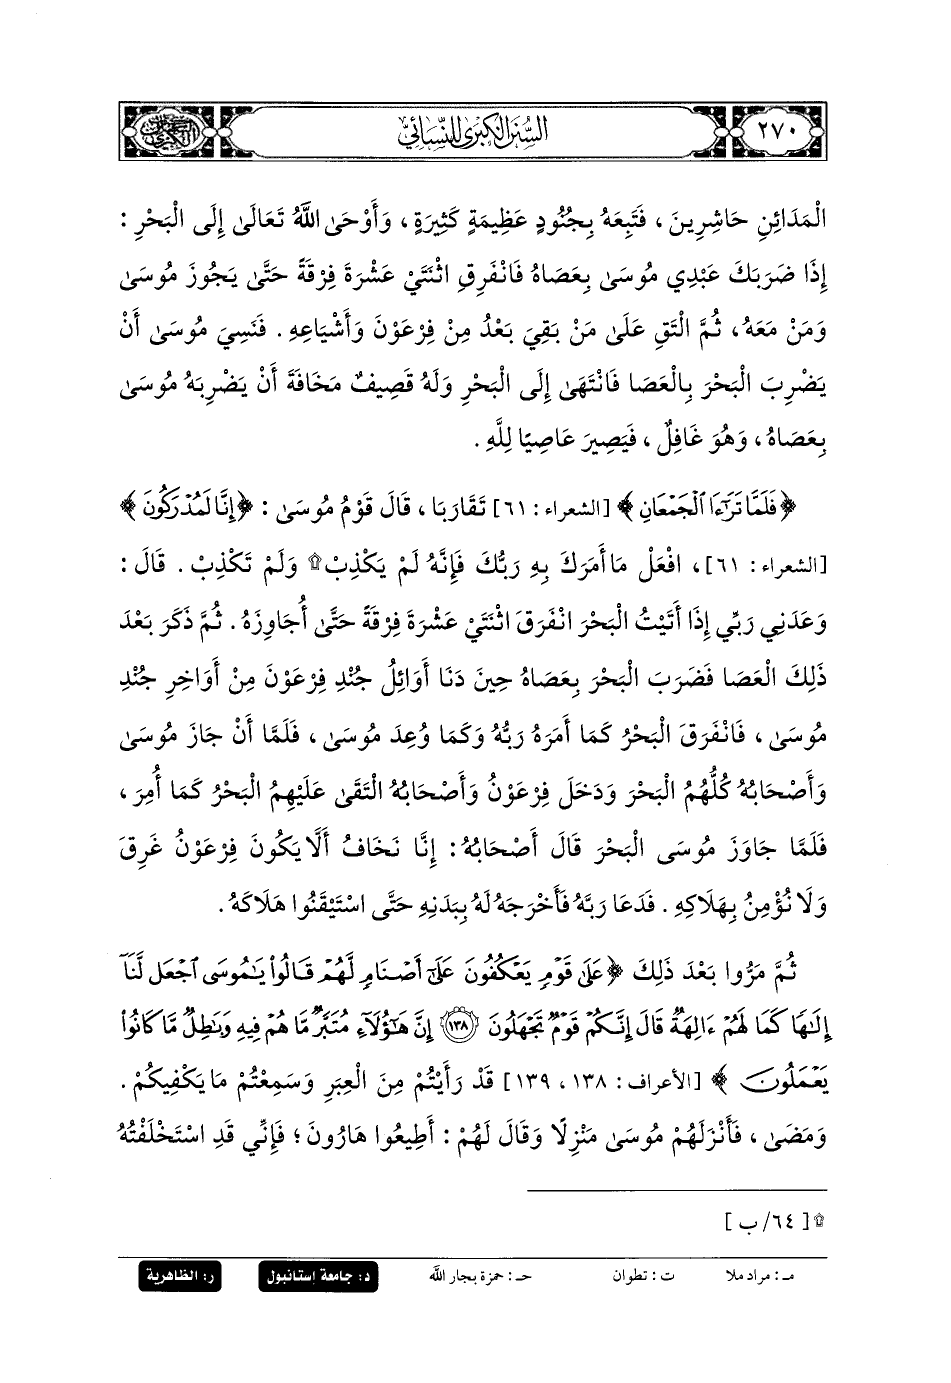 ٢٧٠
السنن الكبرى للنسائي
الْمَدَائِنِ حَاشِرِينَ ، فَتَبِعَهُ بِجُنُودٍ عَظِيمَةٍ كَثِيرَةٍ ، وَأَوْحَى اللَّهُ تَعَالَى إِلَى الْبَحْرِ :
إِذَا ضَرَبَكَ عَبْدِي مُوسَى بِعَصَاهُ فَانْفَرِقِ اثْنَتَيْ عَشْرَةَ فِرْقَةً حَتَّى يَجُوزَ مُوسَى
وَمَنْ مَعَهُ، ثُمَّ الْتَقِ عَلَى مَنْ بَقِيَ بَعْدُ مِنْ فِرْعَوْنَ وَأَشْيَاعِهِ . فَنَسِيَ مُوسَى أَنْ
يَضْرِبَ الْبَحْرَ بِالْعَصَا فَانْتَهَى إِلَى الْبَحْرِ وَلَهُ قَصِيفٌ مَخَافَةَ أَنْ يَضْرِبَهُ مُوسَى
بِعَصَاهُ ، وَهُوَ غَافِلٌ ، فَيَصِيرَ عَاصِيًا لِلَّهِ .
﴿فَلَمَّا تَرَٰٓءَا ٱلْجَمْعَانِ ﴾ [الشعراء : ٦١] تَقَارَبَا ، قَالَ قَوْمُ مُوسَى : ﴿إِنَّا لَمُدْرَكُونَ ﴾
[الشعراء : ٦١] ، افْعَلْ مَا أَمَرَكَ بِهِ رَبُّكَ فَإِنَّهُ لَمْ يَكْذِبْ۩ وَلَمْ تَكْذِبْ . قَالَ :
وَعَدَنِي رَبِّي إِذَا أَتَيْتُ الْبَحْرَ انْفَرَقَ اثْنَتَيْ عَشْرَةَ فِرْقَةً حَتَّى أُجَاوِزَهُ . ثُمَّ ذَكَرَ بَعْدَ
ذَلِكَ الْعَصَا فَضَرَبَ الْبَحْرَ بِعَصَاهُ حِينَ دَنَا أَوَائِلُ جُنْدِ فِرْعَوْنَ مِنْ أَوَاخِرِ جُنْدِ
مُوسَى ، فَانْفَرَقَ الْبَحْرُ كَمَا أَمَرَهُ رَبُّهُ وَكَمَا وُعِدَ مُوسَى ، فَلَمَّا أَنْ جَازَ مُوسَى
وَأَصْحَابُهُ كُلُّهُمُ الْبَحْرَ وَدَخَلَ فِرْعَوْنُ وَأَصْحَابُهُ الْتَقَى عَلَيْهِمُ الْبَحْرُ كَمَا أُمِرَ ،
فَلَمَّا جَاوَزَ مُوسَى الْبَحْرَ قَالَ أَصْحَابُهُ : إِنَّا نَخَافُ أَلَّا يَكُونَ فِرْعَوْنُ غَرِقَ
وَلَا نُؤْمِنُ بِهَلَاكِهِ . فَدَعَا رَبَّهُ فَأَخْرَجَهُ لَهُ بِبَدَنِهِ حَتَّى اسْتَيْقَنُوا هَلَاكَهُ .
ثُمَّ مَرُّوا بَعْدَ ذَلِكَ ﴿عَلَىٰ قَوْمٍ يَعْكُفُونَ عَلَىٰٓ أَصْنَامٍ لَّهُمْ قَالُوا۟ يَٰمُوسَى ٱجْعَل لَّنَآ
إِلَٰهًا كَمَا لَهُمْ ءَالِهَةٌ قَالَ إِنَّكُمْ قَوْمٌ تَجْهَلُونَ ١٣٨ إِنَّ هَٰٓؤُلَآءِ مُتَبَّرٌ مَّا هُمْ فِيهِ وَبَٰطِلٌ مَّا كَانُوا۟
يَعْمَلُونَ ﴾ [الأعراف : ١٣٨ ، ١٣٩] قَدْ رَأَيْتُمْ مِنَ الْعِبَرِ وَسَمِعْتُمْ مَا يَكْفِيكُمْ .
وَمَضَى ، فَأَنْزَلَهُمْ مُوسَى مَنْزِلًا وَقَالَ لَهُمْ : أَطِيعُوا هَارُونَ ؛ فَإِنِّي قَدِ اسْتَخْلَفْتُهُ
۩ [ ٦٤/ ب ]
مـ : مراد ملا ت : تطوان حـ : حمزة بجار الله د: جامعة إستانبول ر: الظاهرية